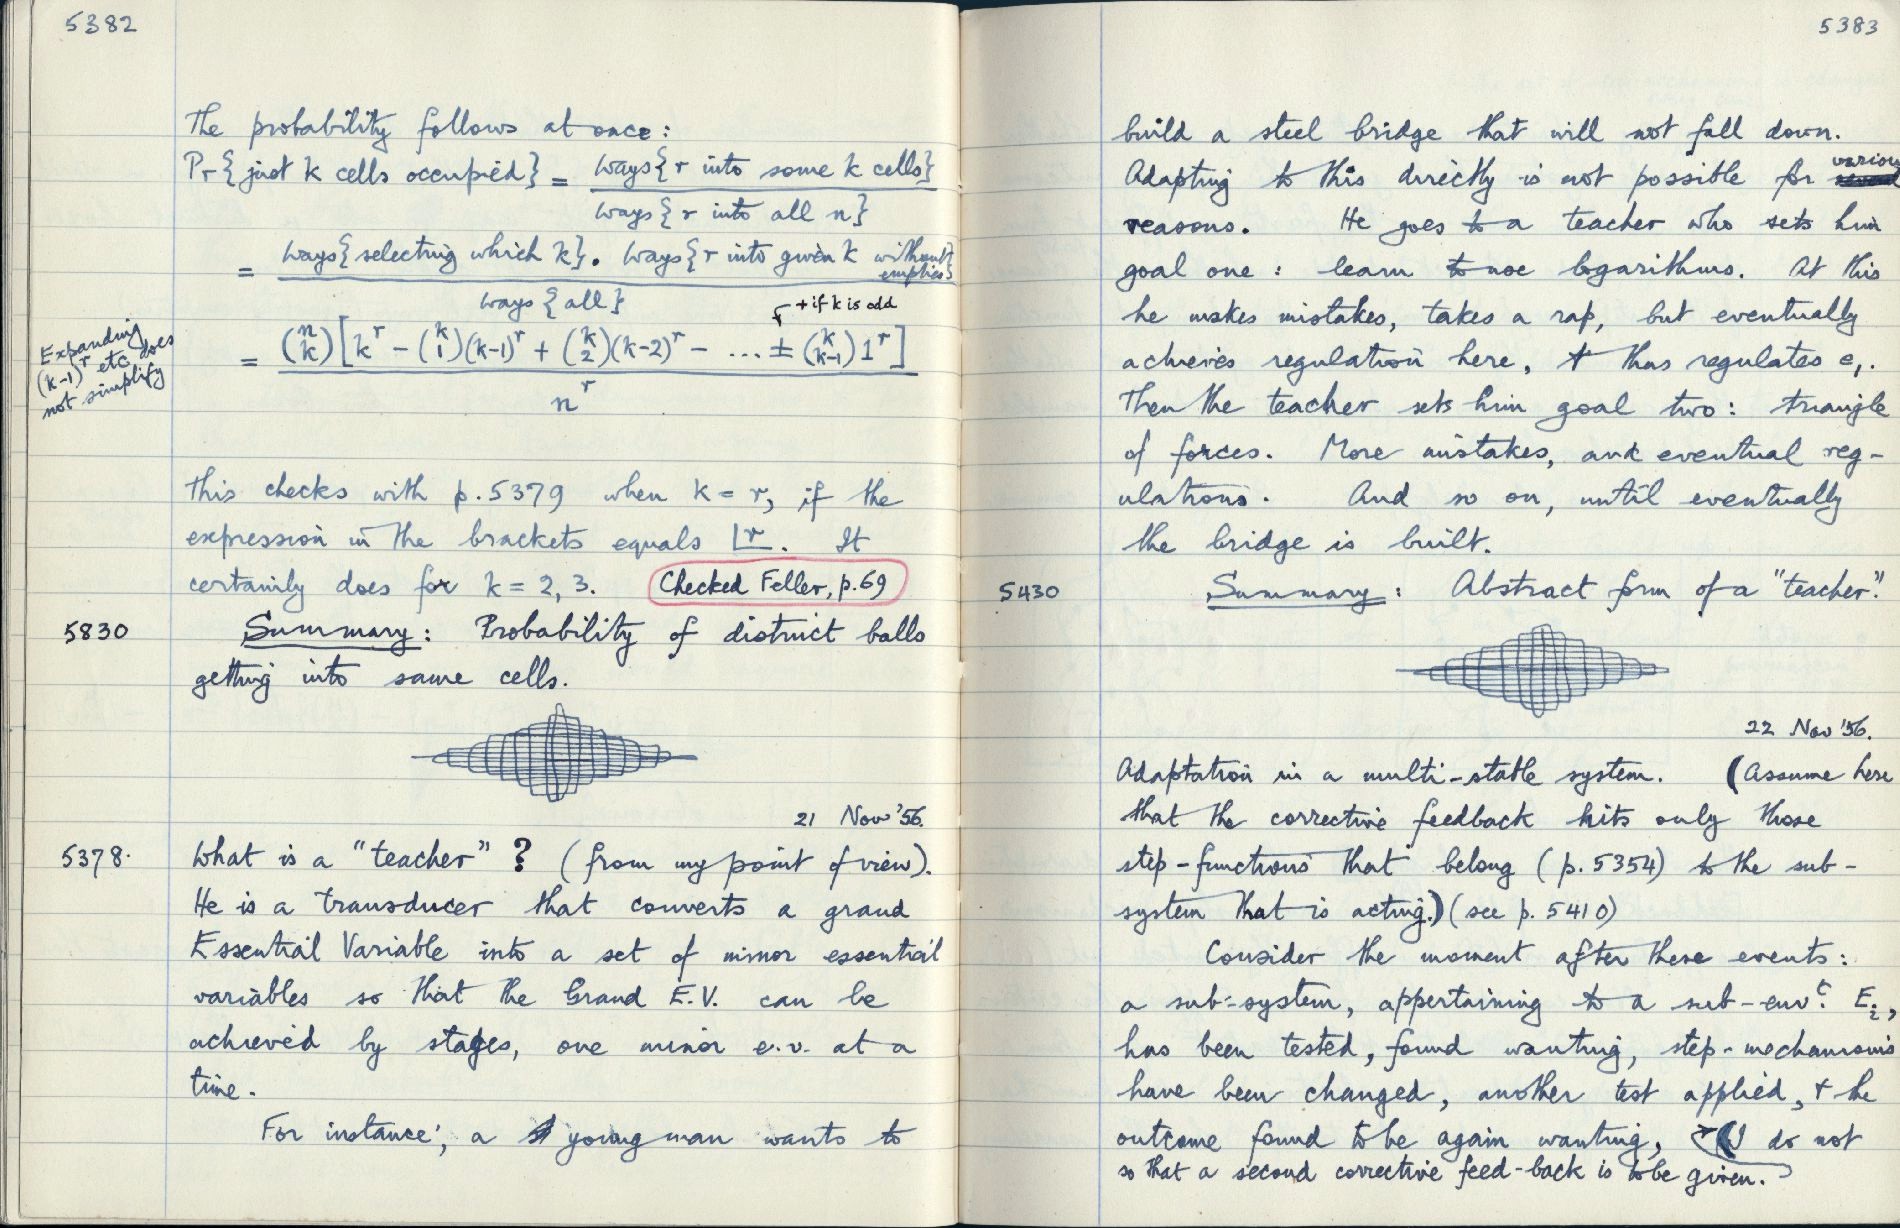 5382
The probability follows at once:
Pr{just k cells occupied} = ways{r into some k cells} / ways{r into all n}
= ways{selecting which k}. ways{r into given k without empties} / ways{all}
+ if k is odd
= (n k)[k^r − (k 1)(k-1)^r + (k 2)(k-2)^r − ... ± (k k-1) 1^r] / n^r
Expanding
(k-1)^r etc does
not simplify
This checks with p.5379 when k = r, if the
expression in the brackets equals |r. It
certainly does for k = 2, 3. Checked Feller, p.69
5830 Summary: Probability of distinct balls
getting into same cells.
21 Nov '56.
5378. What is a "teacher" ? (from my point of view).
He is a transducer that converts a grand
Essential Variable into a set of minor essential
variables so that the Grand E.V. can be
achieved by stages, one minor e.v. at a
time.
For instance, a young man wants to
5383
build a steel bridge that will not fall down.
Adapting to this directly is not possible for various
reasons. He goes to a teacher who sets him
goal one : learn to use logarithms. At this
he makes mistakes, takes a rap, but eventually
achieves regulation here, + thus regulates e₁.
Then the teacher sets him goal two : triangle
of forces. More mistakes, and eventual reg-
ulations. And so on, until eventually
the bridge is built.
5430 Summary: Abstract form of a "teacher".
22 Nov '56.
Adaptation in a multi-stable system. (Assume here
that the corrective feedback hits only those
step-functions that belong (p.5354) to the sub-
system that is acting.) (see p. 5410)
Consider the moment after these events:
a sub-system, appertaining to a sub-envt. E₂,
has been tested, found wanting, step-mechanisms
have been changed, another test applied, + the
outcome found to be again wanting, do not
so that a second corrective feed-back is to be given.